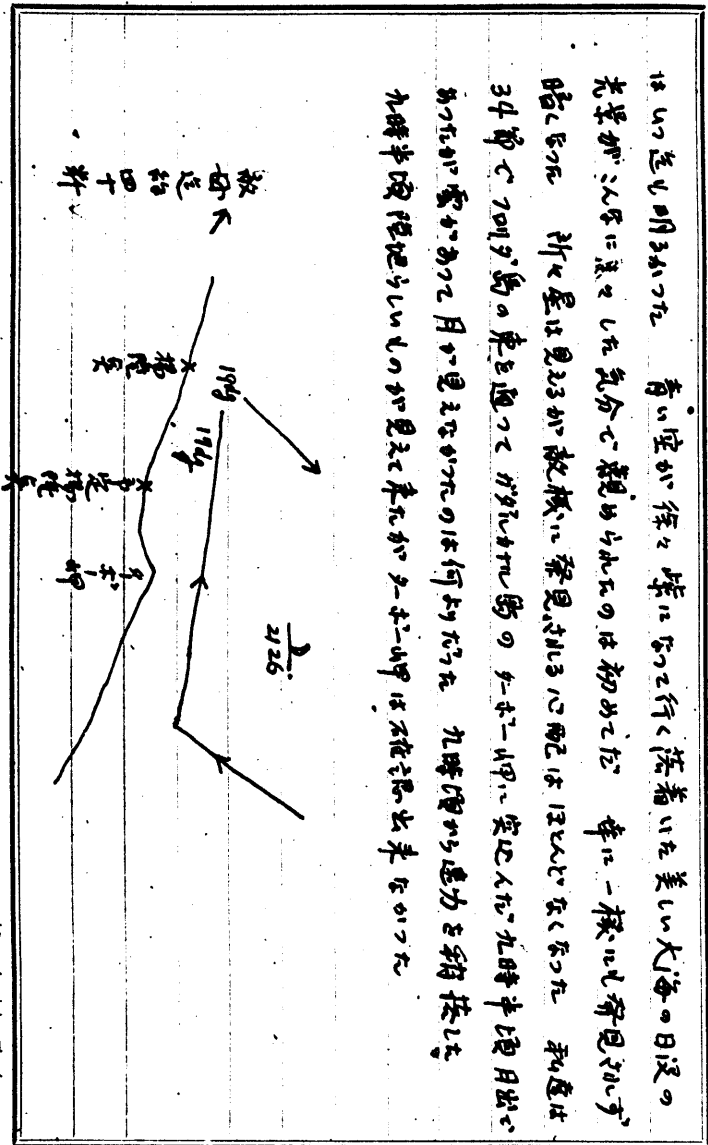 はいつ迄も明るかった　青い空が徐々に紫になって行く落着いた美しい大海の日没の
光景がこんなに淡々した気分で観められたのは初めてだ　幸に一機にも発見されず
暗くなった　所々星は見えるが敵機に発見される心配はほとんどなくなった　私達は
34節でフロリダ島の東を通ってガダルカナル島のタボー岬に突込んだ九時半頃月出で
あったが雲があって月が見えなかったのは何よりだった　九時頃から速力を稍落した
九時半頃陸地らしいものが見えて来たがタボー岬は不確認出来なかった
敵舟迄約四十粁
揚陸点
予定揚陸点
タボー岬
19dg
19dg
2126